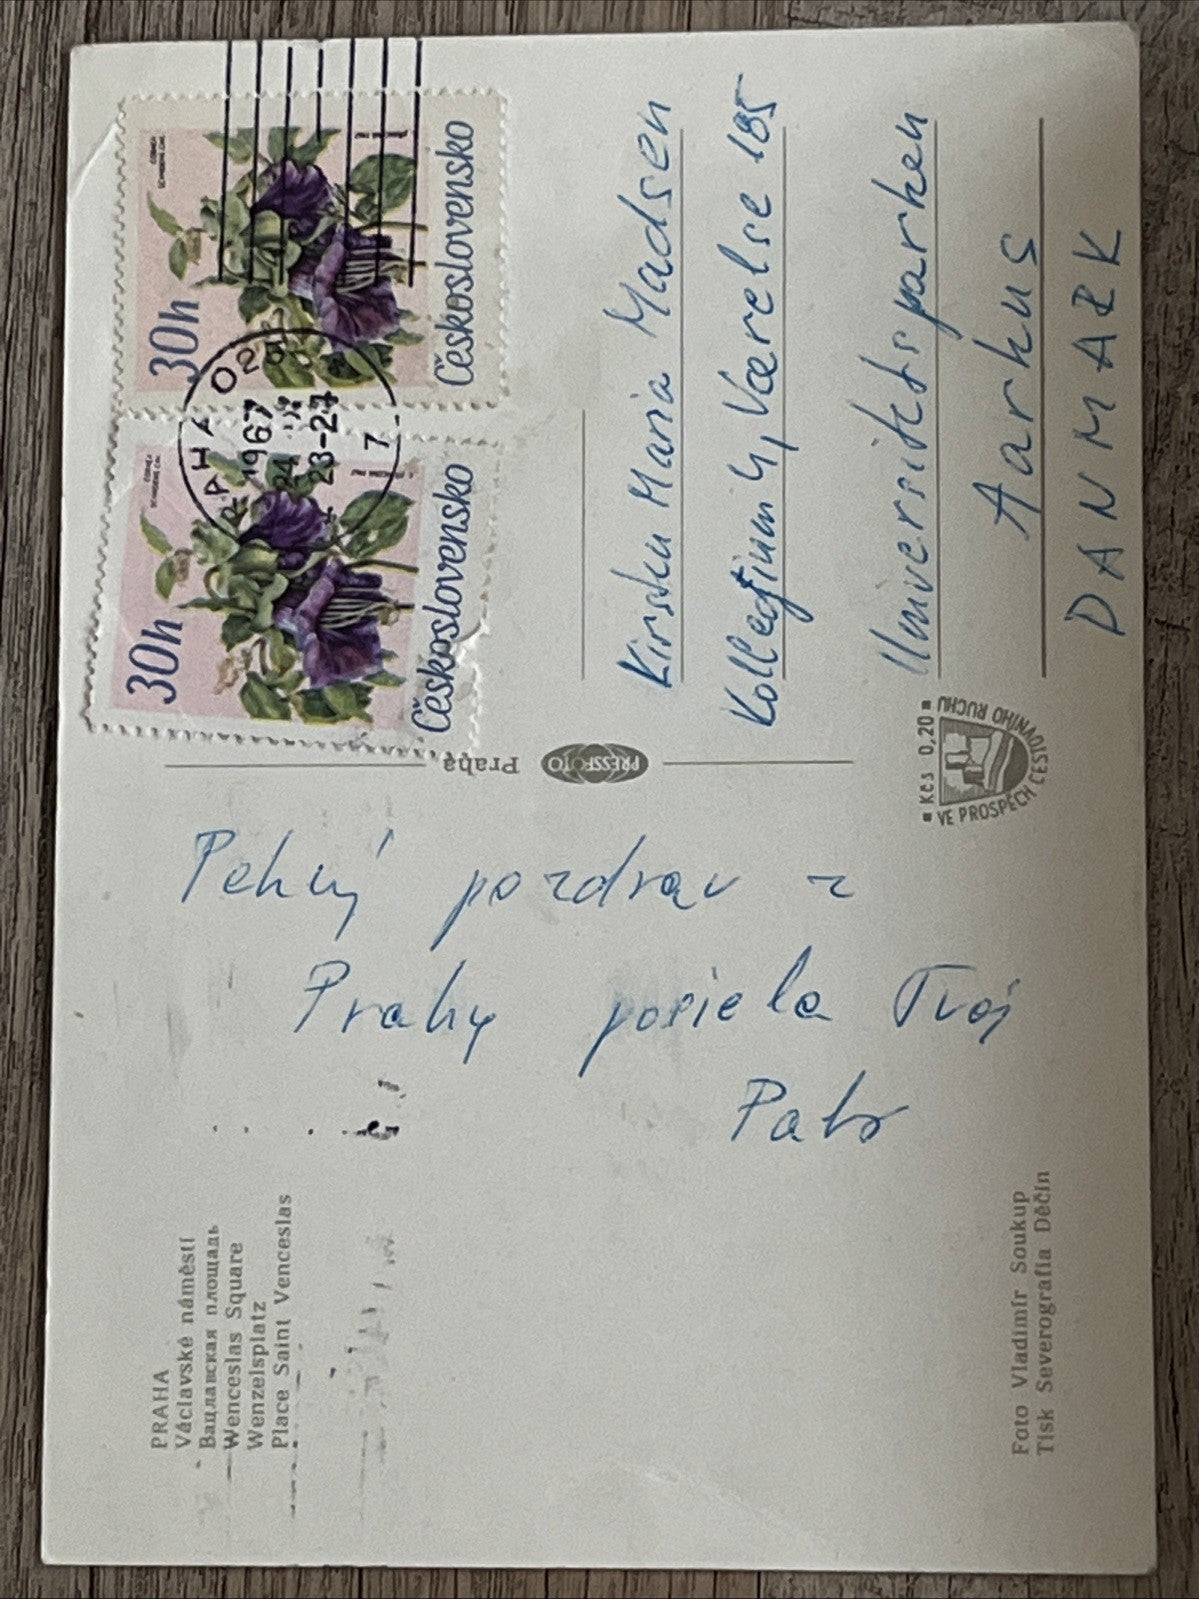 PRAHA
Václavské náměstí
Вацлавская площадь
Wenceslas Square
Wenzelsplatz
Place Saint Venceslas
Pekný pozdrav z
Prahy posiela Tvoj
Foto Vladimír Soukup
Tisk Severografia Děčín
PRESSFOTO Praha
■ Kčs 0,20 ■
VE PROSPĚCH CESTOVNÍHO RUCHU
30h
Československo
30h
Československo
PRAHA 02
1967
23-24
7
Kirsten Maria Madsen
Kollegium 4, Værelse 185
Universitetsparken
Aarhus
DANMARK